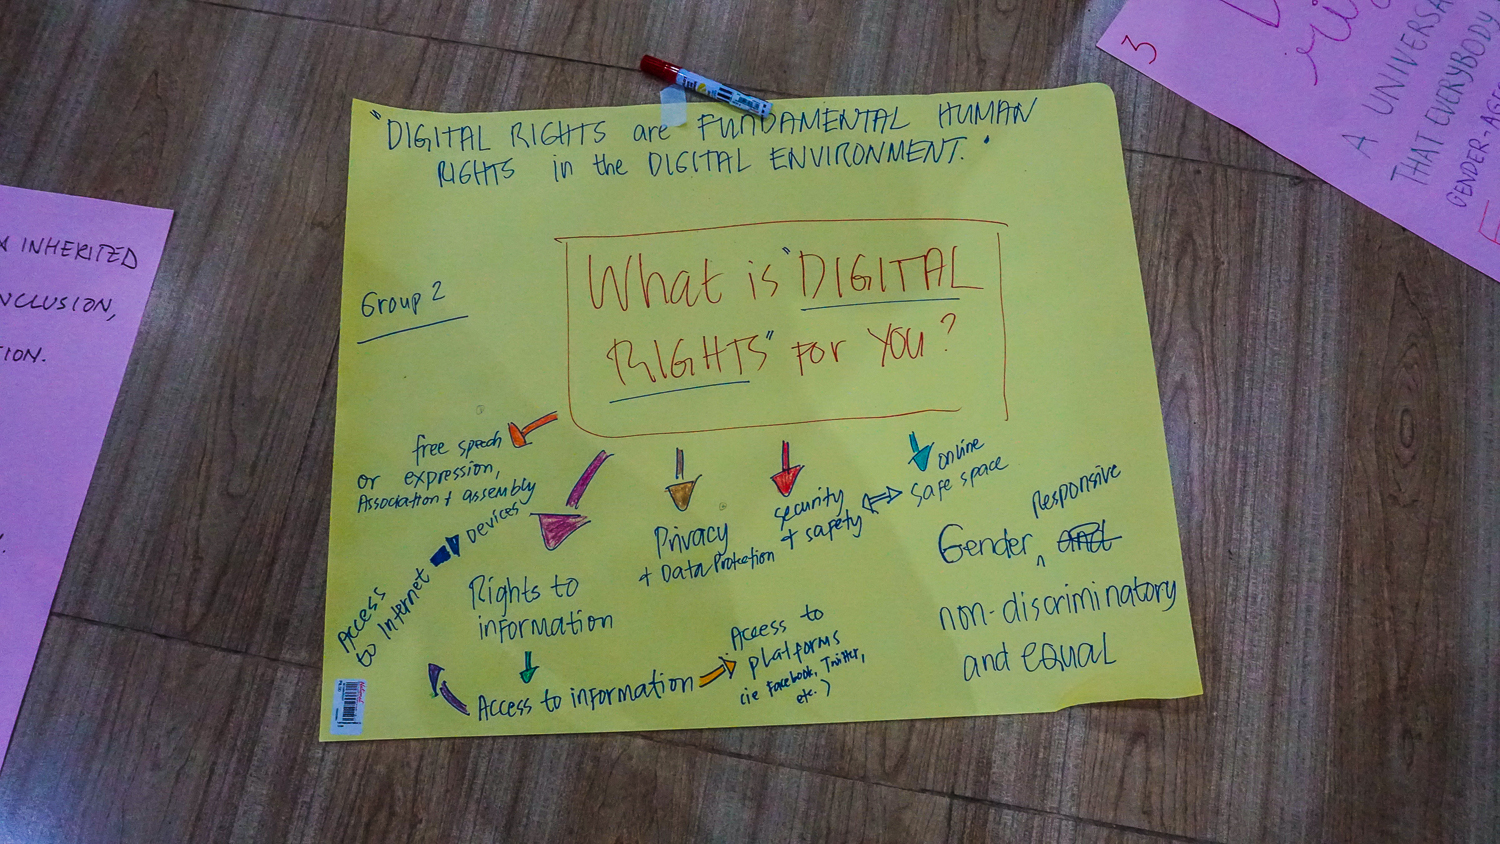 "DIGITAL RIGHTS are FUNDAMENTAL HUMAN
RIGHTS in the DIGITAL ENVIRONMENT."
Group 2
What is "DIGITAL
RIGHTS" FOR YOU?
free speech
or expression,
Association + assembly
Devices
Access
to Internet
Rights to
information
Access to information
Privacy
+ Data Protection
security
+ safety
online
safe space
Access to
platforms
(ie Facebook, Twitter,
etc.)
Responsive
Gender ^ and
non-discriminatory
and equal
INHERITED
NCLUSION,
TION.
3
A UNIVERSA
THAT EVERYBODY
GENDER-AGE